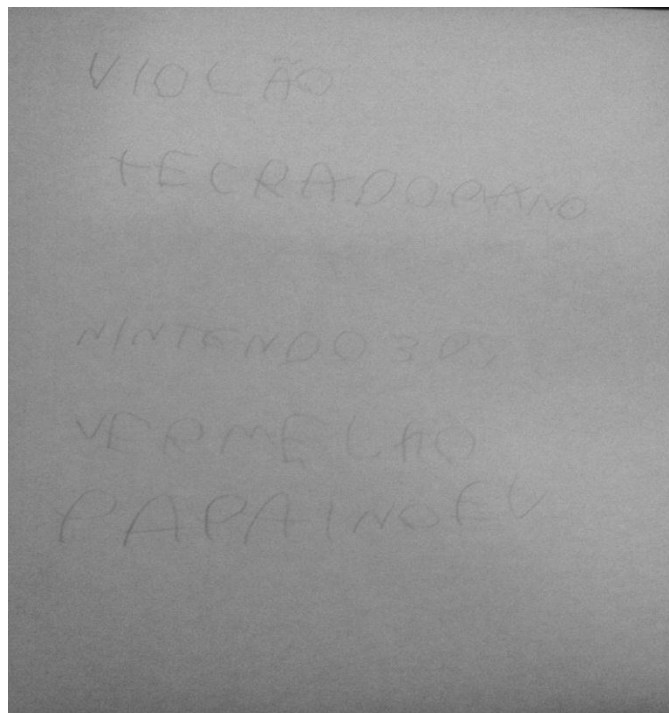 VIOLÃO
TECRADOPIANO
NINTENDO 3DS
VERMELHO
PAPAINOEL